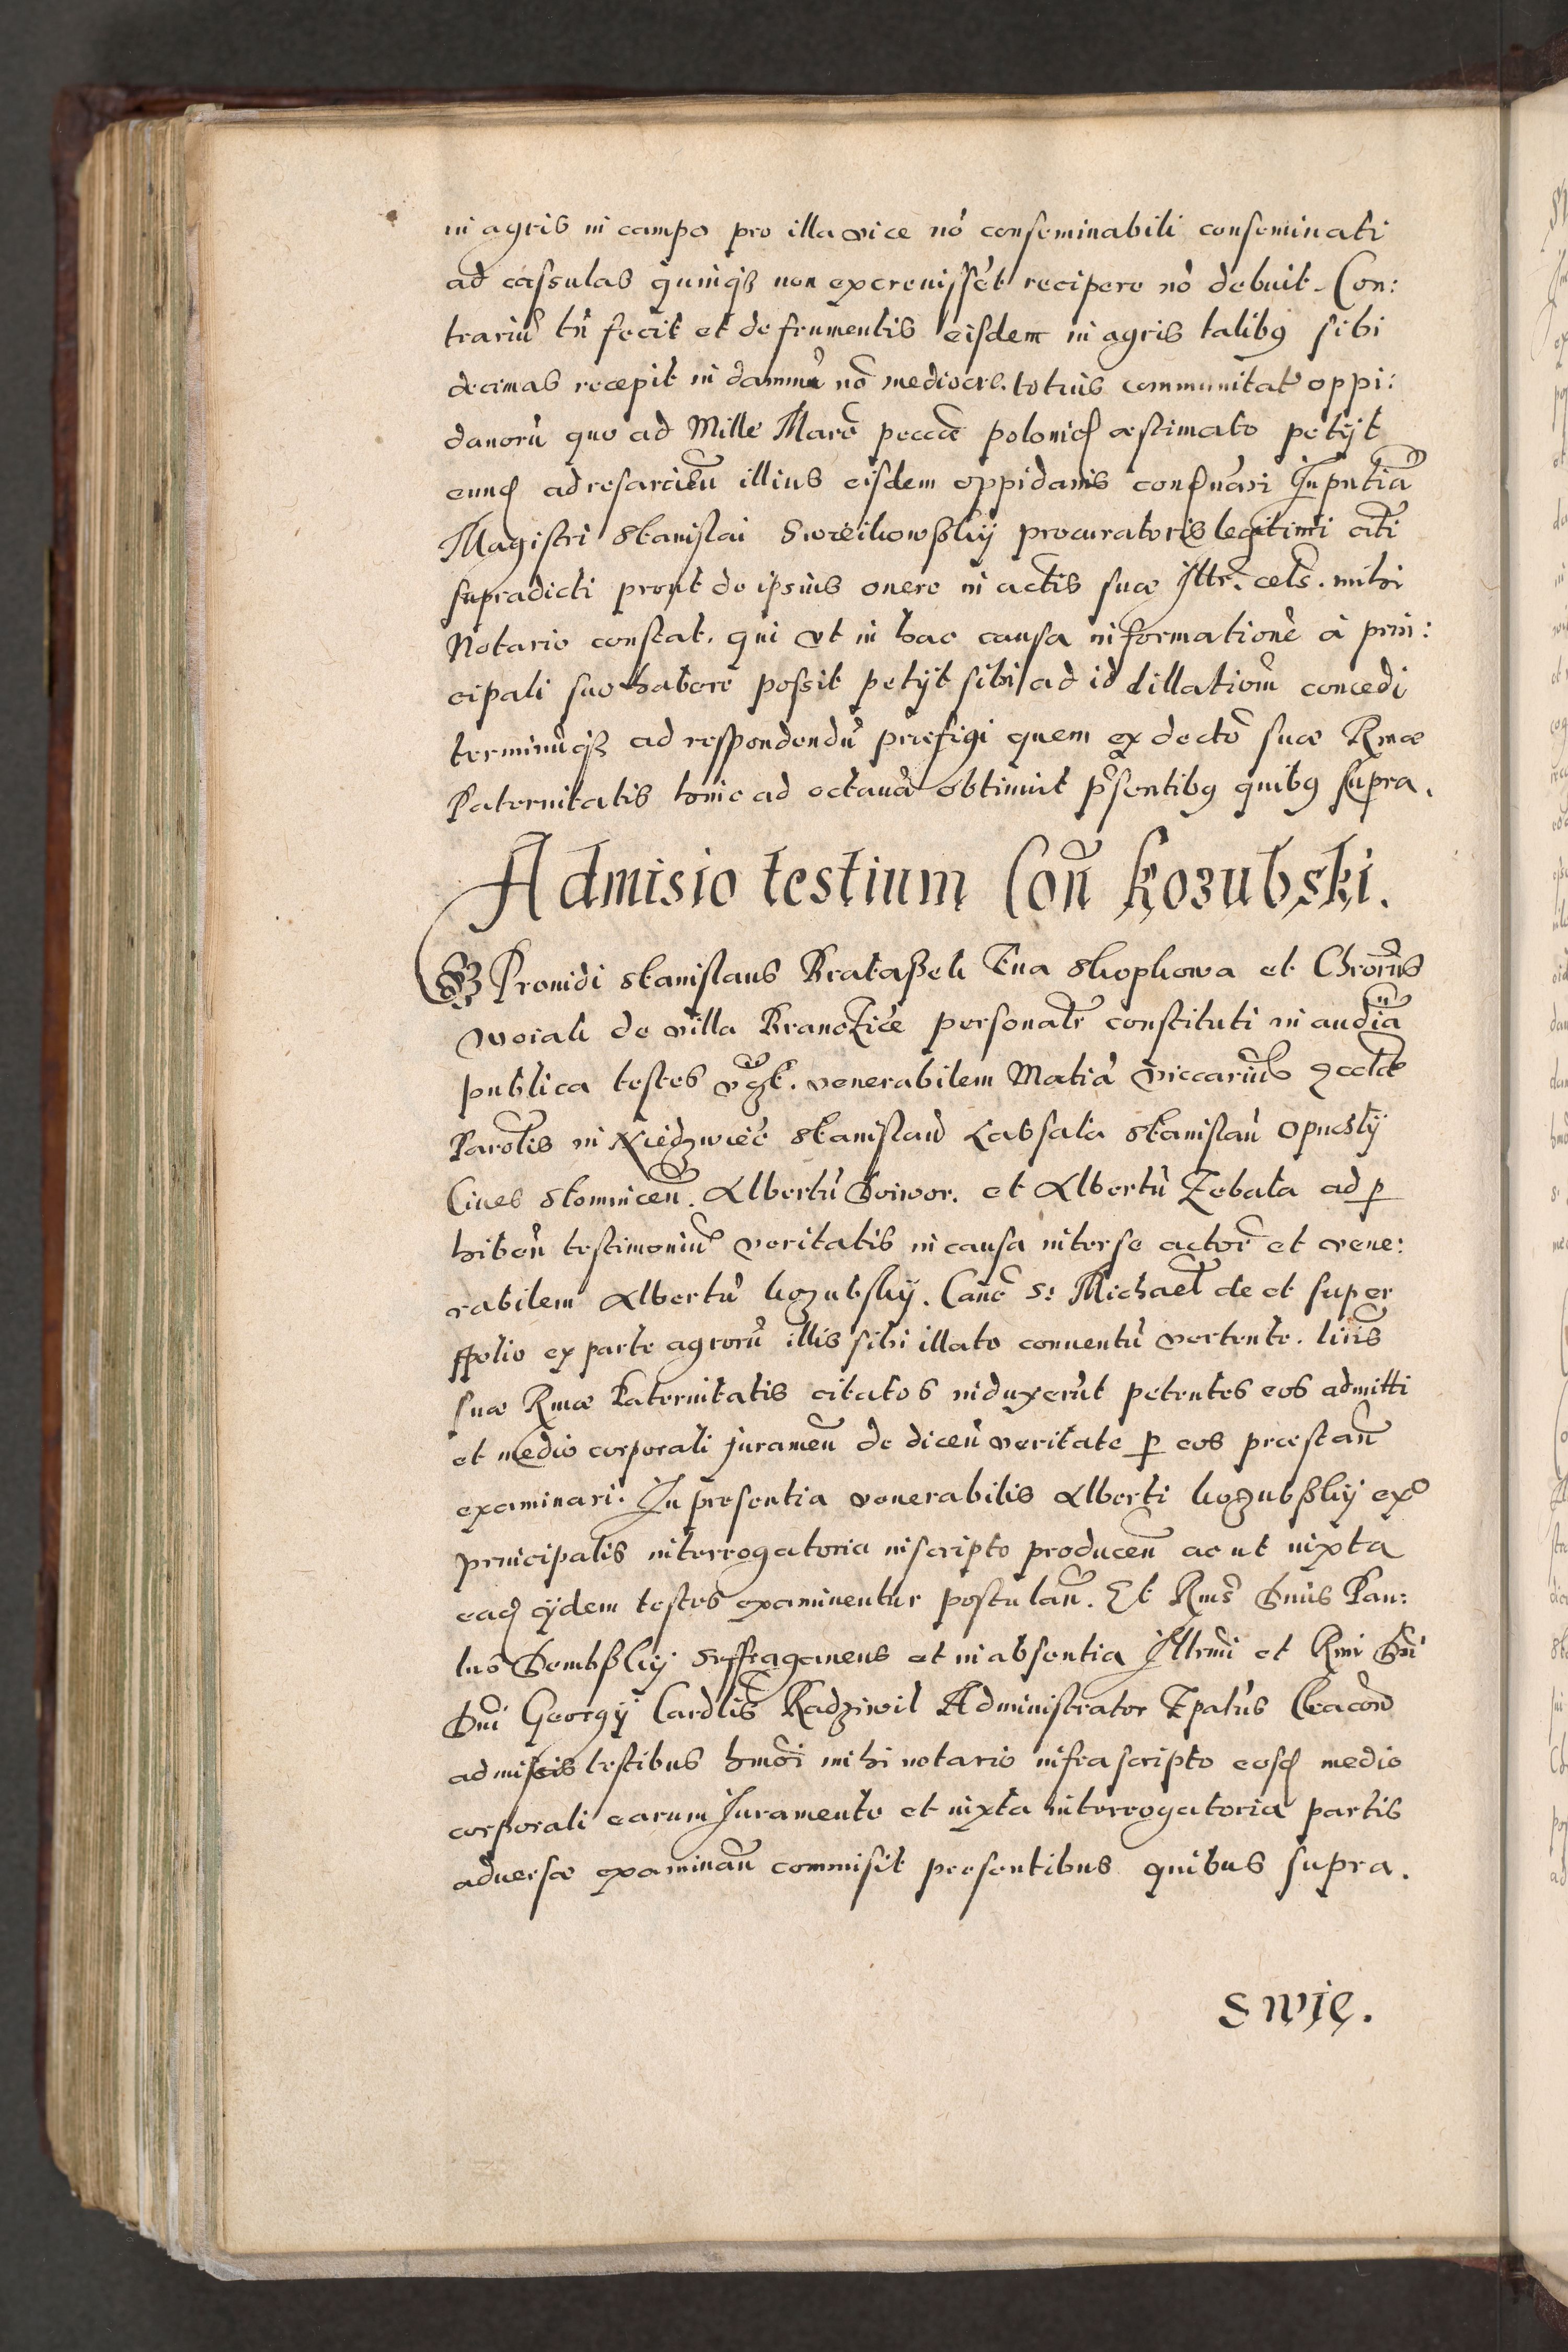 in agris in campo pro illa vice nō conseminabili conseminati
ad cassulas quinqz non excrevissēt recipere nō debuit. Con:
trariū tn̄ fecit et de frumentis eisdem in agris talibus sibi
decimas recepit in damnū nō mediocre. totius communitat oppi:
danorū quo ad Mille Marc̄ pecc̄æ polonicq æstimato petijt
eunq ad resarciēn illius eisdem oppidanis cond̄nari In pn̄tia
Magistri Stanislai procuratoris legitimi citi
supradicti prout de ipsius onere in actis suæ Illr̄. cels. mihi
Notario constat. qui vt in hac causa informationē à prin:
cipali suo habere possit petijt sibi ad id dillationē concedi
terminūqz ad respondendū præfigi quem ex decto suæ Rmæ
Paternitatis hinc ad octavā obtinuit p̄sentibus quibus supra.
Admisio testium Con̄ Kozubski.
Providi Stanislaus et
de villa personalr̄ constituti in audīa
publica testes vz̄t. venerabilem Matiā viccariū Eccl̄æ
Parotis in Niedzwiec Stanislaū Labsata Stanislaū
Cives Slomnicen̄. Albertū et Albertū Zebala ad p
hiben̄ testimoniū veritatis in causa inter se actorē et vene:
rabilem Albertū kozubskij. Can̄c S: Michael de et super
spolio ex parte agrorū illis sibi illato conventū vertente. lrīs
suæ Rmæ Paternitatis citatos induxerūt petentes eos admitti
et medio corporali juramen̄ de dicen̄ veritate p eos præstan̄
examinari. In presentia venerabilis Alberti kozubskij exᵒ
principalis interrogatoria in scripto producen̄ ac ut iuxta
eaq ijdem testes examinentur postulan̄. Et Rms̄ Dnūs Pau:
lus Dembskij Suffraganeus et in absentia Illrmi et Rmi Dnī
Dnī Georgij Cardlis Radziwil Administrator Epatūs Cracōn
admissis testibus hmōi mihi notario infrascripto eosq medio
corporali earum Juramento et iuxta interrogatoria partis
adversæ examinān commisit presentibus quibus supra.
Swię.